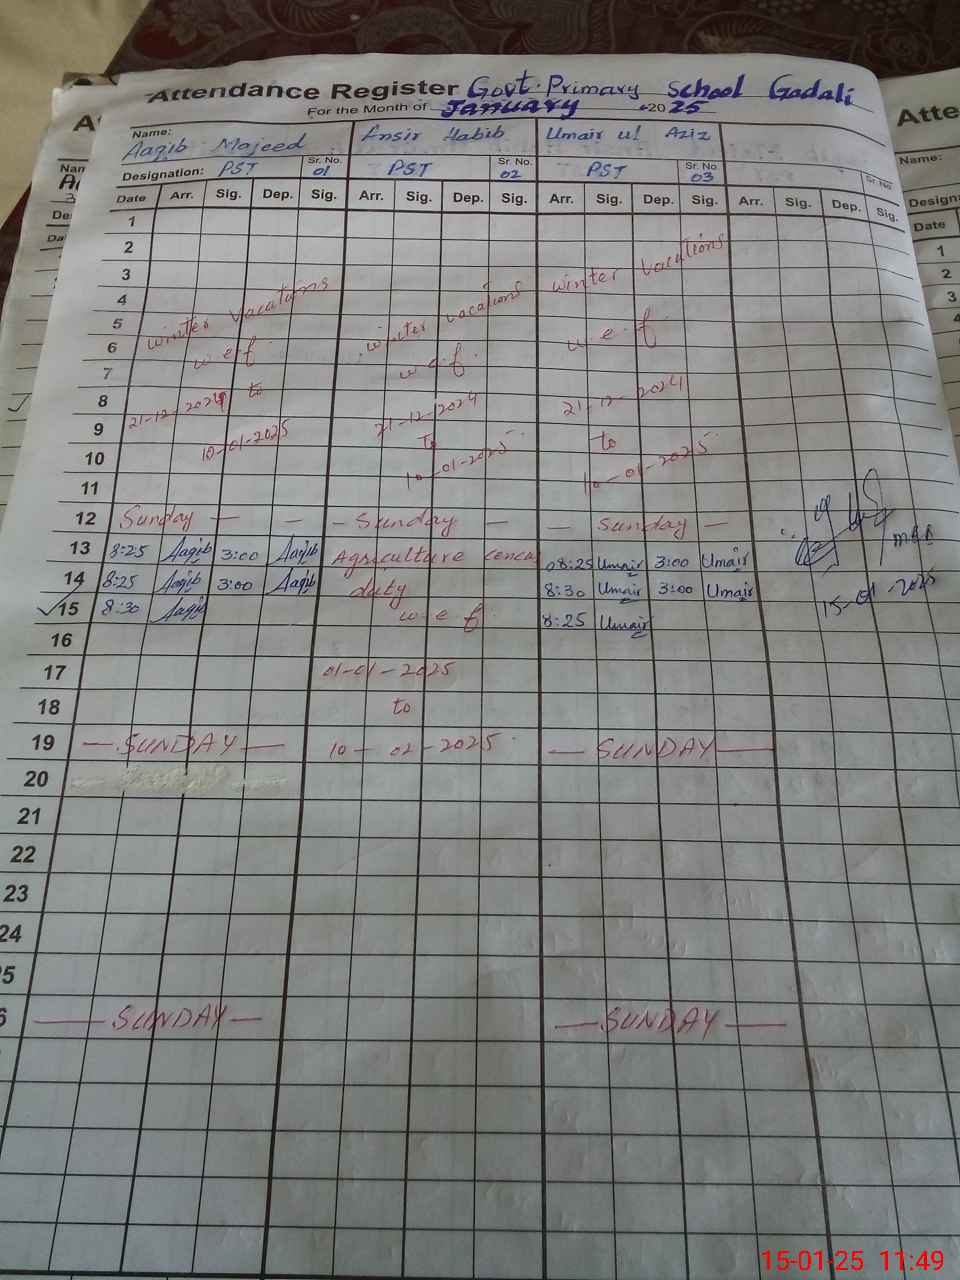 Attendance Register Govt. Primary School Gadali
For the Month of January 2025
Name: Aaqib Majeed Ansir Habib Umair ul Aziz
Designation: PST Sr. No. 01 PST Sr. No. 02 PST Sr. No. 03 Sr. No
Date Arr. Sig. Dep. Sig. Arr. Sig. Dep. Sig. Arr. Sig. Dep. Sig. Arr. Sig. Dep. Sig.
1
2
3 winter vacations
4 winter vacations winter vacations
5
6 w.e.f. w.e.f. w.e.f.
7
8 21-12-2024 to 21-12-2024 21-12-2024
9 10-01-2025 To to
10 10-01-2025 10-01-2025
11
12 Sunday — — - Sunday — — Sunday —
13 8:25 Aaqib 3:00 Aaqib Agriculture cencus 08:25 Umair 3:00 Umair
14 8:25 Aaqib 3:00 Aaqib duty 8:30 Umair 3:00 Umair
15 8:30 Aaqib w e f 8:25 Umair 15-01-2025
16
17 01-01-2025
18 to
19 — SUNDAY — 10-02-2025 — SUNDAY —
20
21
22
23
24
5
6 — SUNDAY — — SUNDAY —
Atte
Name:
Design
Date
1
2
3
4
5
6
7
8
9
15-01-25 11:49